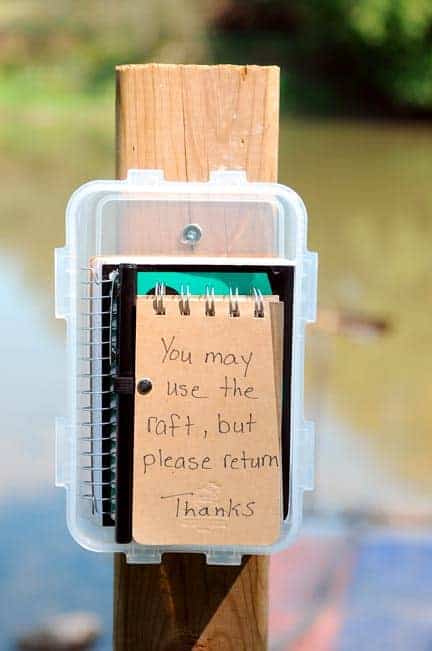 You may
use the
raft, but
please return
Thanks